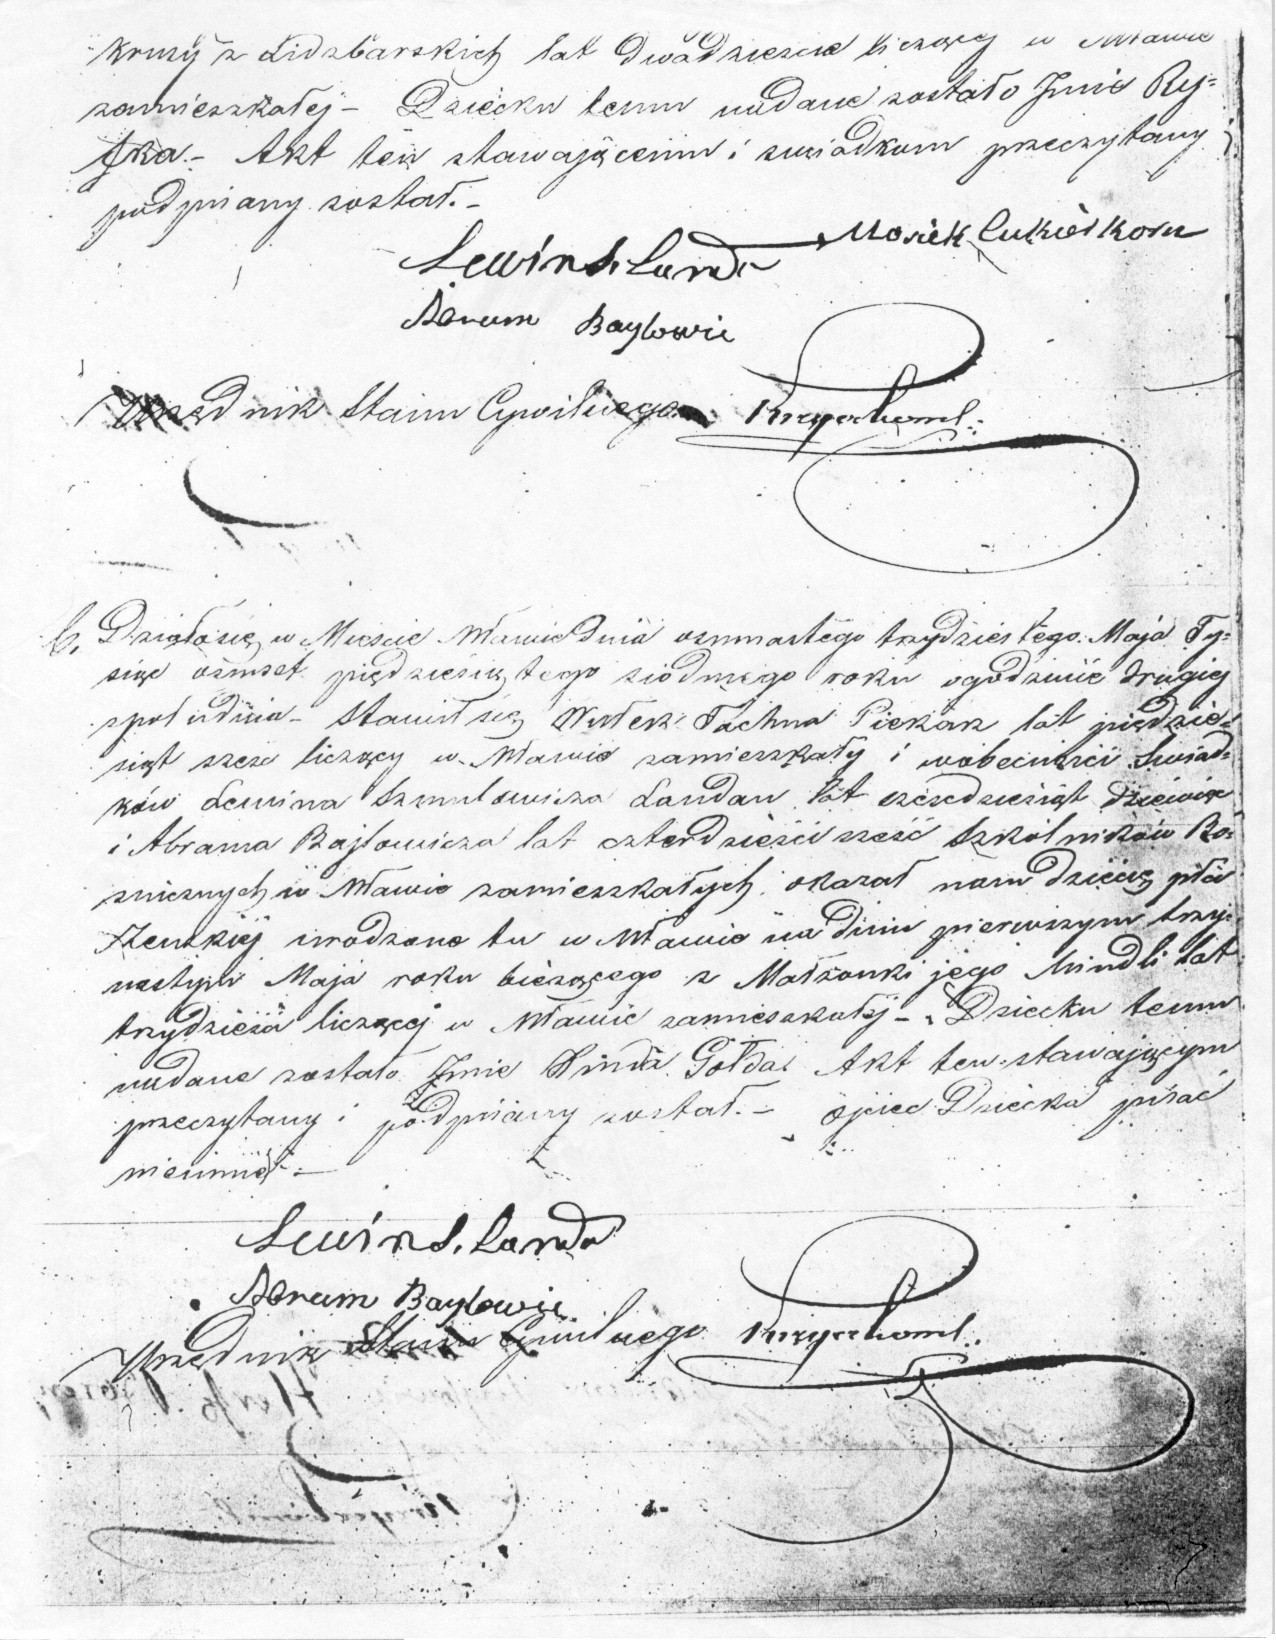 Krusy z Lidzbarskich lat Dwadzieście liczącej w Mławie
zamieszkałej – Dziecku temu nadane zostało Jmie Ry-
fka. – Akt ten stawającemu i swiadkom przeczytany i
podpisany został. –
Mosiek Cukierkorn
Lewin S. Landa
Abram Baylowic
Urzędnik Stanu Cywilnego
6. Działo się w Mieście Mławie Dnia osmnastego trzydziestego Maja Ty-
siąc osmset piędziesiątego siódmego roku o godzinie drugiej
z południa – Stawił się Wulek Piekarz lat piędzie-
siąt sześć liczący w Mławie zamieszkały i w obecności Swiad-
ków Lewina Szmulowicza Landau lat sześdziesiąt dziewięć
i Abrama Bajlowicza lat czterdzieści sześć Szkolników Bo-
żnicznych w Mławie zamieszkałych, okazał nam dziecię płci
Żeńskiej urodzone tu w Mławie na dniu pierwszym trzy-
nastym Maja roku bieżącego z Małżonki jego Mindli lat
trzydzieści liczącej w Mławie zamieszkałej – Dziecku temu
nadane zostało Jmie Gołda. Akt ten stawającym
przeczytany i podpisany został. – Ojciec Dziecka pisać
nieumie –
Lewin S. Landa
Abram Baylowic
Urzędnik Stanu Cywilnego